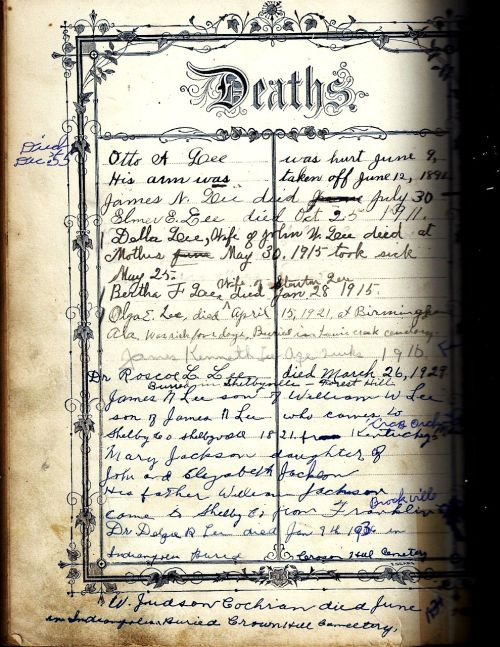 Deaths.
Died
Dec 55
Otto A Lee was hurt June 9,
His arm was taken off June 12, 189
James N. Lee died June July 30
Elmer E. Lee died Oct 25 1911.
Della Lee, Wife of John W. Lee died at
Mothers June May 30, 1915 took sick
May 25-
Wife of Stanton Lee
Bertha F Lee, died Jan 28 1915.
Olga E. Lee, died April 15, 1921, at Birmingham
Ala. Was sick four days, Buried in cemetery.
James Kenneth Lee Age 1910
Dr Roscoe L. Lee died March 26, 1929
Buried in Shelbyville - Forest Hill
James N Lee son of William W Lee
son of James N Lee who came to
Shelby Co Shelbyville 1821 from Kentucky
Crab Orchard
Mary Jackson daughter of
John and Elizabeth Jackson
His father William Jackson
Brookville
came to Shelby Co from Franklin
Dr R Lee died Jan 9th in
Indianapolis Buried Crown Hill Cemetery
W. Judson Cochran died June
in Indianapolis Buried Crown Hill Cemetery,